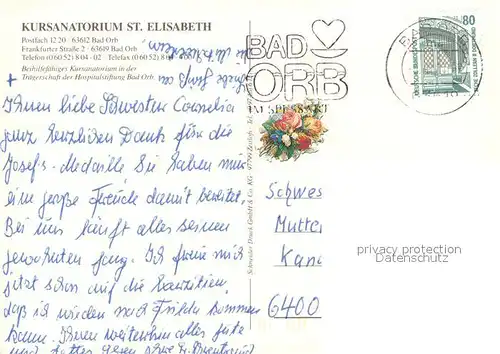 KURSANATORIUM ST. ELISABETH
Postfach 12 20 · 63612 Bad Orb
Frankfurter Straße 2 · 63619 Bad Orb
Telefon (0 60 52) 8 04 - 02
Beihilfefähiges Kursanatorium in der
Trägerschaft der Hospitalstiftung Bad Orb
BAD
ORB
IM SPESSART
80
DEUTSCHE BUNDESPOST
Ihnen liebe Schwester Cornelia
ganz herzlichen Dank für die
Josefs-Medaille Sie haben mir
eine große Freude damit bereitet.
Bei uns läuft alles seinen
gewohnten Gang. Ich freue mich
jetzt schon auf die
daß ich wieder nach Fulda kommen
kann. Ihnen weiterhin alles Gute
und Gottes Segen
Schwes
Mutter
Kana
6400
privacy protection
Datenschutz